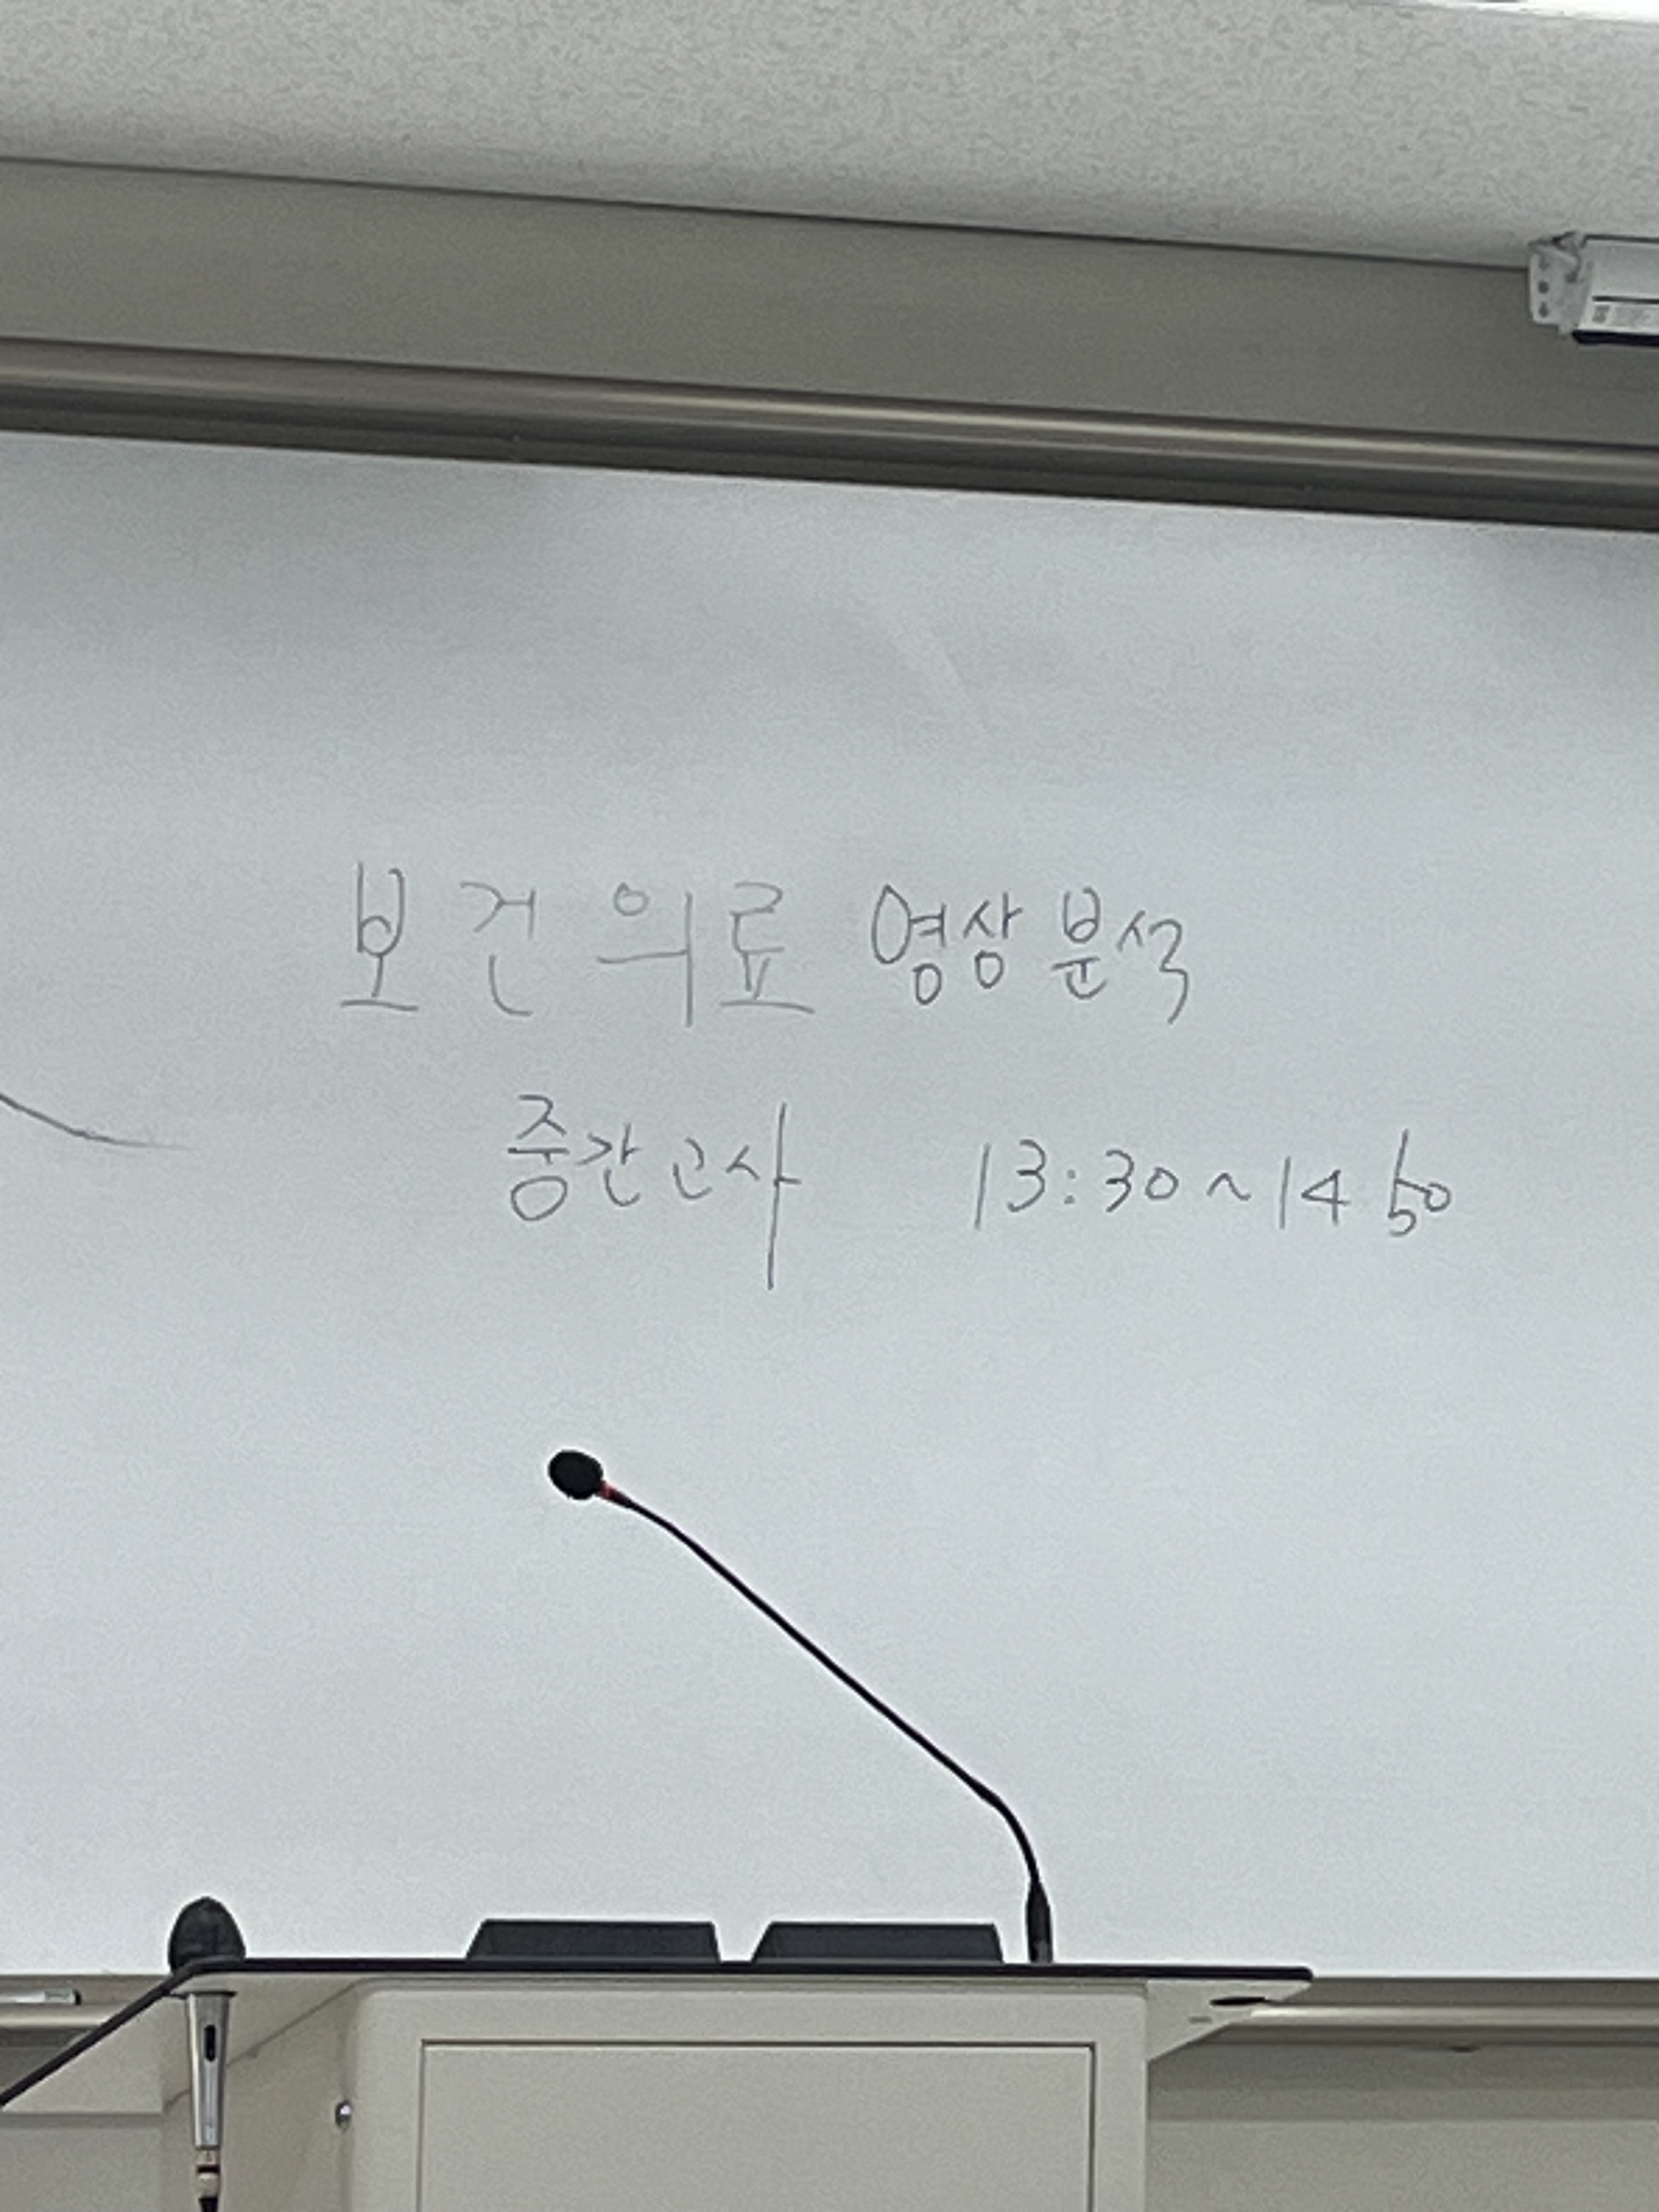 보건의료 영상분석
중간고사 13:30~14 50